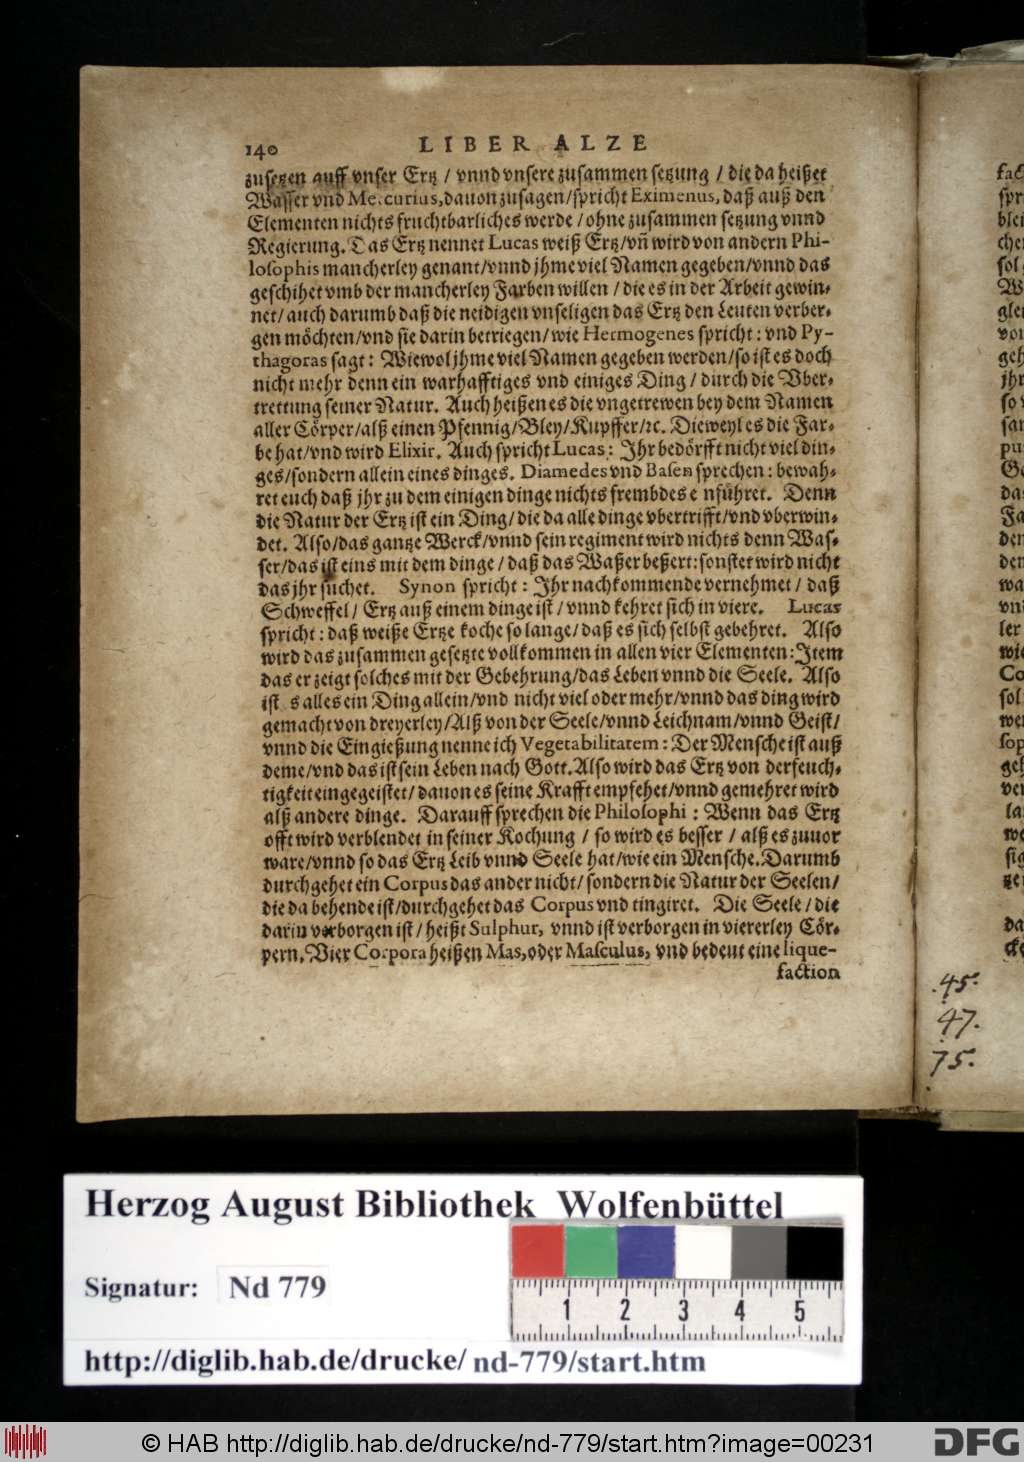 140 LIBER ALZE
zusetzen auff vnser Ertz / vnnd vnsere zusammen setzung / die da heißet
Wasser vnd Mercurius, dauon zusagen / spricht Eximenus, daß auß den
Elementen nichts fruchtbarliches werde / ohne zusammen setzung vnnd
Regierung. Das Ertz nennet Lucas weiß Ertz / vñ wird von andern Phi-
losophis mancherley genant / vnnd jhme viel Namen gegeben / vnnd das
geschihet vmb der mancherley Farben willen / die es in der Arbeit gewin-
net / auch darumb daß die neidigen vnseligen das Ertz den Leuten verber-
gen möchten / vnd sie darin betriegen / wie Hermogenes spricht: vnd Py-
thagoras sagt: Wiewol jhme viel Namen gegeben werden / so ist es doch
nicht mehr denn ein warhafftiges vnd einiges Ding / durch die Vber-
trettung seiner Natur. Auch heißen es die vngetrewen bey dem Namen
aller Cörper / alß einen Pfennig / Bley / Kupffer / ꝛc. Dieweyl es die Far-
be hat / vnd wird Elixir. Auch spricht Lucas: Jhr bedörfft nicht viel din-
ges / sondern allein eines dinges. Diamedes vnd Basen sprechen: bewah-
ret euch daß jhr zu dem einigen dinge nichts frembdes e nführet. Denn
die Natur der Ertz ist ein Ding / die da alle dinge vbertrifft / vnd vberwin-
det. Also / das gantze Werck / vnnd sein regiment wird nichts denn Was-
ser / das ist eins mit dem dinge / daß das Waßer beßert: sonstet wird nicht
das jhr suchet. Synon spricht: Jhr nachkommende vernehmet / daß
Schweffel / Ertz auß einem dinge ist / vnnd kehret sich in viere. Lucas
spricht: daß weiße Ertze koche so lange / daß es sich selbst gebehret. Also
wird das zusammen gesetzte vollkommen in allen vier Elementen: Jtem
das er zeigt solches mit der Gebehrung / das Leben vnnd die Seele. Also
ist s alles ein Ding allein / vnd nicht viel oder mehr / vnnd das ding wird
gemacht von dreyerley / Alß von der Seele / vnnd Leichnam / vnnd Geist /
vnnd die Eingießung nenne ich Vegetabilitatem: Der Mensche ist auß
deme / vnd das ist sein Leben nach Gott. Also wird das Ertz von der feuch-
tigkeit eingegeistet / dauon es seine Krafft empfehet / vnnd gemehret wird
alß andere dinge. Darauff sprechen die Philosophi: Wenn das Ertz
offt wird verblendet in seiner Kochung / so wird es besser / alß es zuuor
ware / vnnd so das Ertz Leib vnnd Seele hat / wie ein Mensche. Darumb
durchgehet ein Corpus das ander nicht / sondern die Natur der Seelen /
die da behende ist / durchgehet das Corpus vnd tingiret. Die Seele / die
darin verborgen ist / heißt Sulphur, vnnd ist verborgen in viererley Cör-
pern. Vier Corpora heißen Mas, oder Masculus, vnd bedeut eine lique-
faction
.45.
47.
75.
Herzog August Bibliothek Wolfenbüttel
Signatur: Nd 779
1 2 3 4 5
http://diglib.hab.de/drucke/ nd-779/start.htm
© HAB http://diglib.hab.de/drucke/nd-779/start.htm?image=00231
DFG